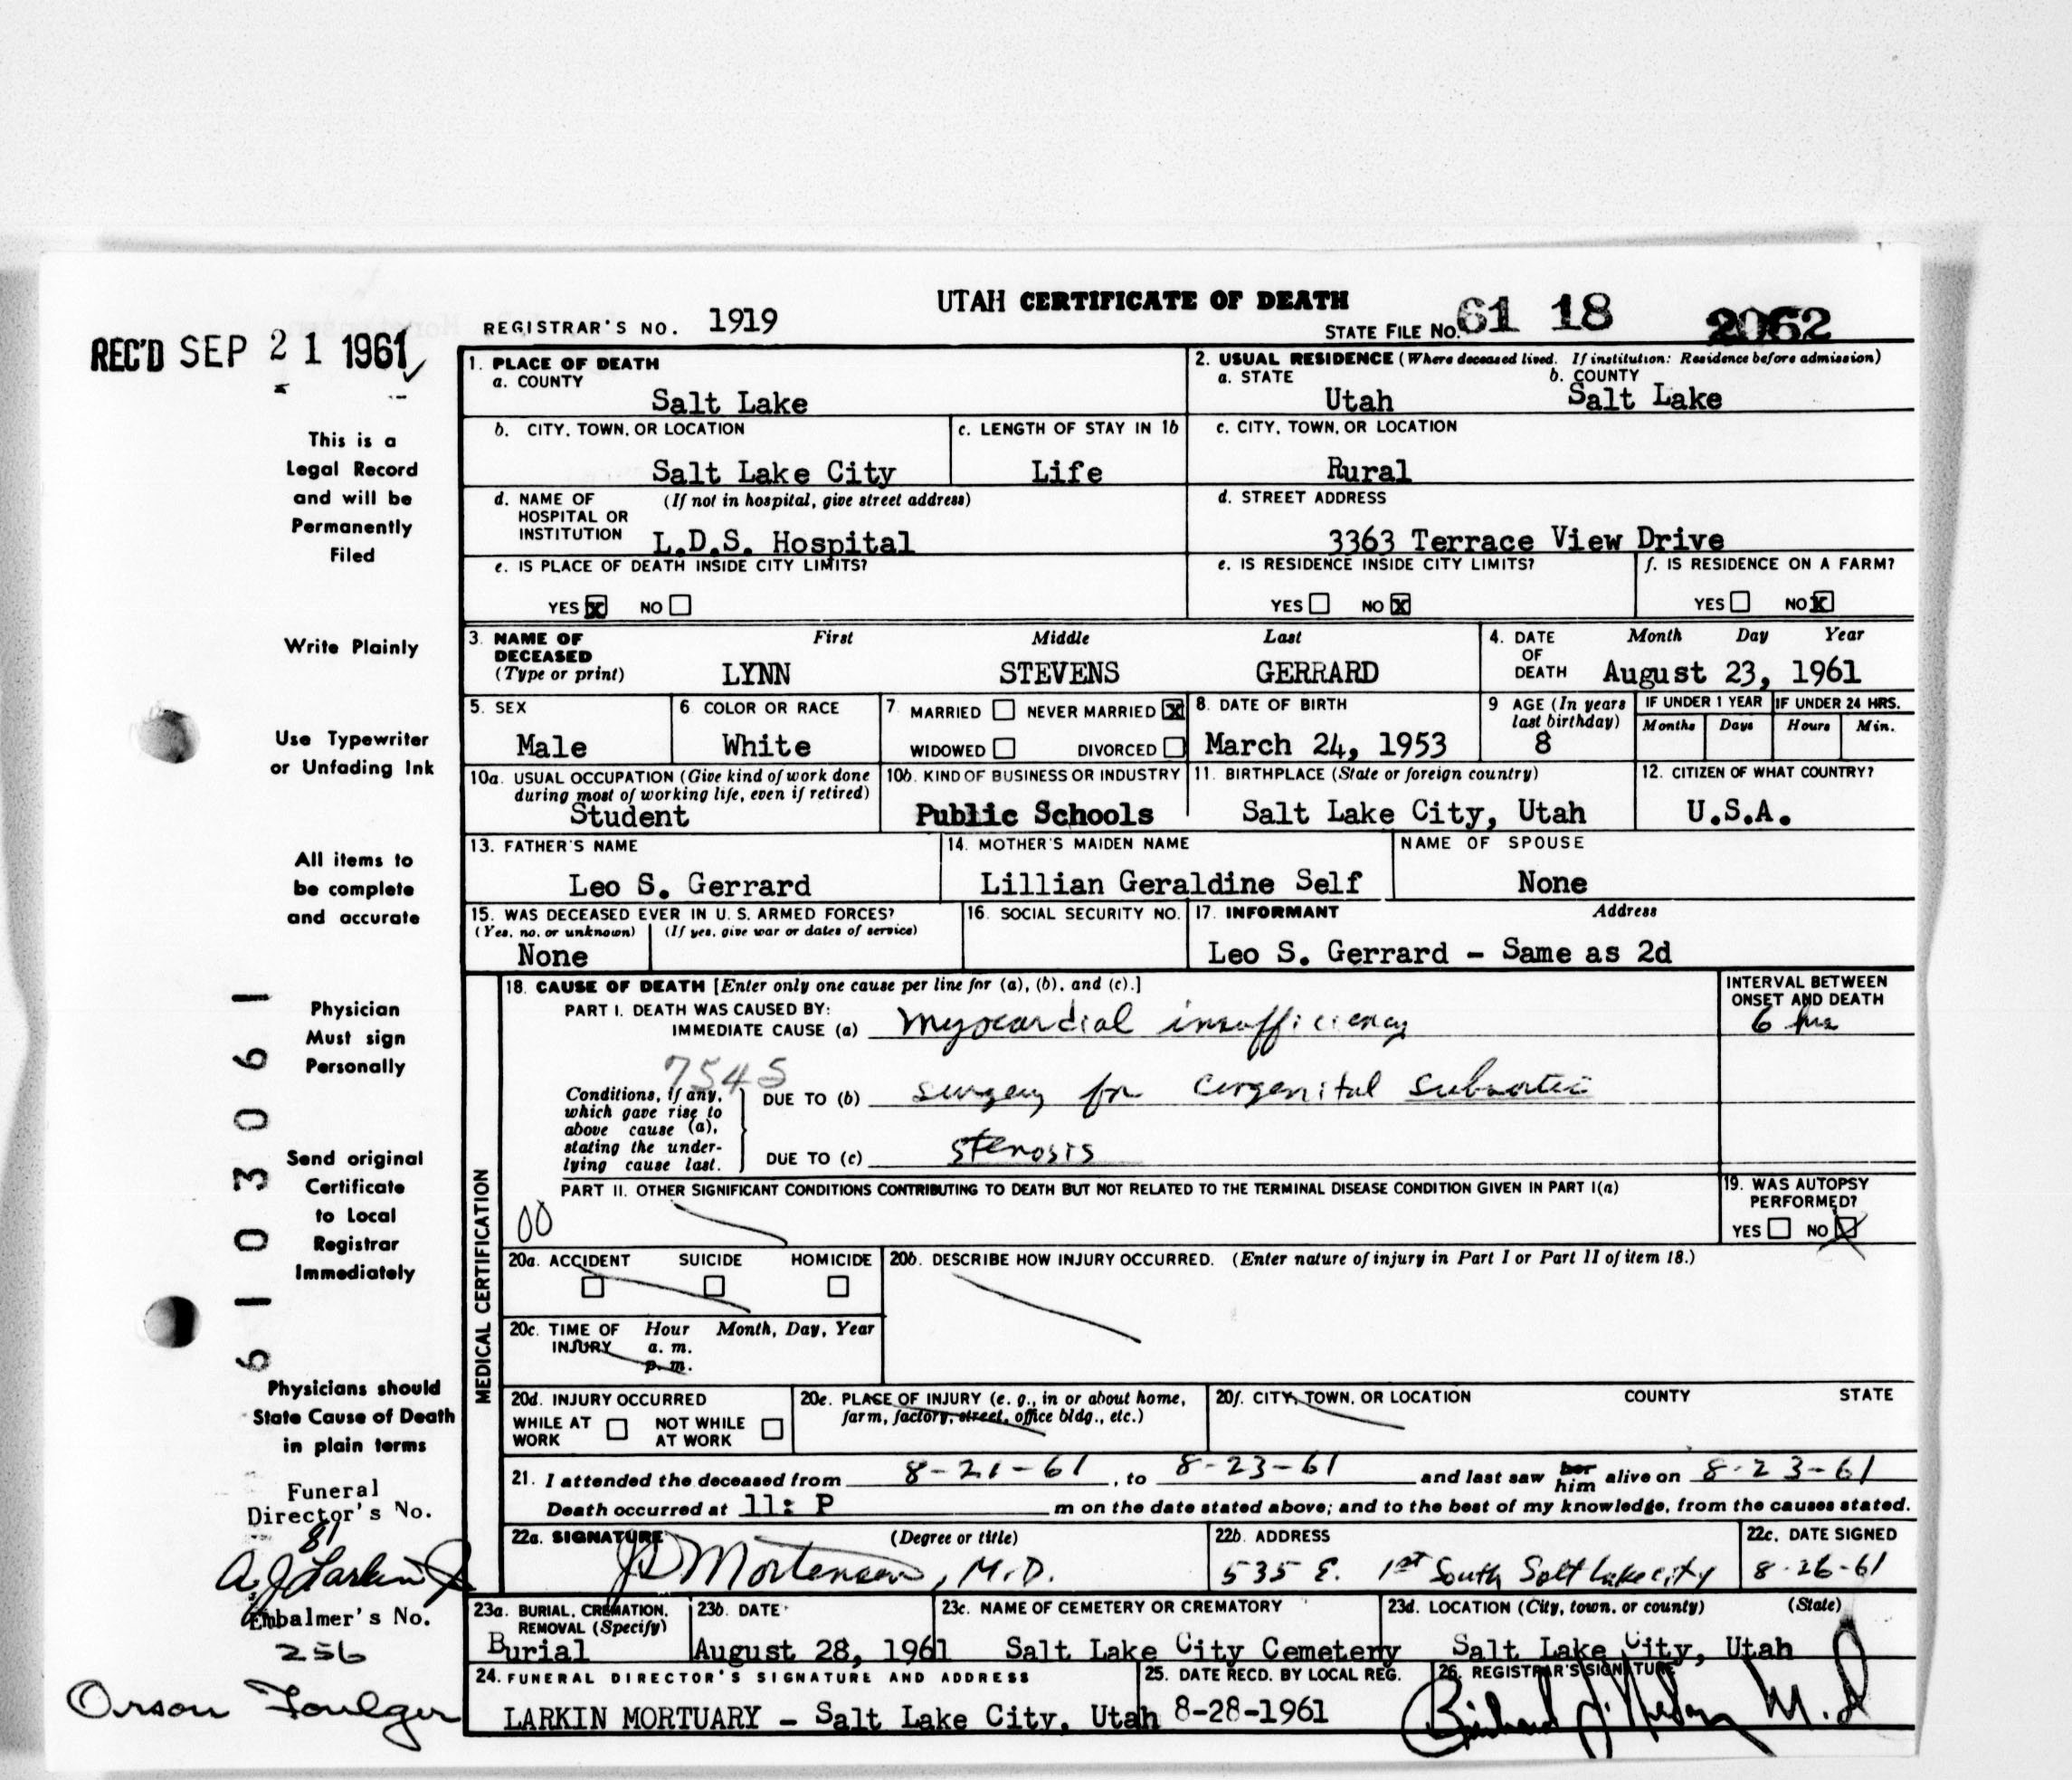 UTAH CERTIFICATE OF DEATH
REGISTRAR'S NO. 1919
STATE FILE NO. 61 18 2062
REC'D SEP 21 1961
1. PLACE OF DEATH
a. COUNTY
Salt Lake
2. USUAL RESIDENCE (Where deceased lived. If institution: Residence before admission)
a. STATE b. COUNTY
Utah Salt Lake
b. CITY, TOWN, OR LOCATION
Salt Lake City
c. LENGTH OF STAY IN 1b
Life
c. CITY, TOWN, OR LOCATION
Rural
d. NAME OF HOSPITAL OR INSTITUTION (If not in hospital, give street address)
L.D.S. Hospital
d. STREET ADDRESS
3363 Terrace View Drive
e. IS PLACE OF DEATH INSIDE CITY LIMITS?
YES X NO
e. IS RESIDENCE INSIDE CITY LIMITS?
YES NO X
f. IS RESIDENCE ON A FARM?
YES NO X
3. NAME OF DECEASED (Type or print)
First Middle Last
LYNN STEVENS GERRARD
4. DATE OF DEATH Month Day Year
August 23, 1961
5. SEX
Male
6. COLOR OR RACE
White
7. MARRIED NEVER MARRIED X
WIDOWED DIVORCED
8. DATE OF BIRTH
March 24, 1953
9 AGE (In years last birthday)
8
IF UNDER 1 YEAR
Months Days
IF UNDER 24 HRS.
Hours Min.
10a. USUAL OCCUPATION (Give kind of work done during most of working life, even if retired)
Student
10b. KIND OF BUSINESS OR INDUSTRY
Public Schools
11. BIRTHPLACE (State or foreign country)
Salt Lake City, Utah
12. CITIZEN OF WHAT COUNTRY?
U.S.A.
13. FATHER'S NAME
Leo S. Gerrard
14. MOTHER'S MAIDEN NAME
Lillian Geraldine Self
NAME OF SPOUSE
None
15. WAS DECEASED EVER IN U. S. ARMED FORCES?
(Yes, no, or unknown) (If yes, give war or dates of service)
None
16. SOCIAL SECURITY NO.
17. INFORMANT Address
Leo S. Gerrard - Same as 2d
MEDICAL CERTIFICATION
18. CAUSE OF DEATH [Enter only one cause per line for (a), (b), and (c).]
PART I. DEATH WAS CAUSED BY:
IMMEDIATE CAUSE (a) Myocardial insufficiency
INTERVAL BETWEEN ONSET AND DEATH
6 hrs
7545
Conditions, if any, which gave rise to above cause (a), stating the underlying cause last.
DUE TO (b) surgery for congenital subaortic
DUE TO (c) stenosis
PART II. OTHER SIGNIFICANT CONDITIONS CONTRIBUTING TO DEATH BUT NOT RELATED TO THE TERMINAL DISEASE CONDITION GIVEN IN PART I(a)
00
19. WAS AUTOPSY PERFORMED?
YES NO X
20a. ACCIDENT SUICIDE HOMICIDE
20b. DESCRIBE HOW INJURY OCCURRED. (Enter nature of injury in Part I or Part II of item 18.)
20c. TIME OF INJURY Hour Month, Day, Year
a. m.
p. m.
20d. INJURY OCCURRED
WHILE AT WORK NOT WHILE AT WORK
20e. PLACE OF INJURY (e. g., in or about home, farm, factory, street, office bldg., etc.)
20f. CITY, TOWN, OR LOCATION COUNTY STATE
21. I attended the deceased from 8-21-61, to 8-23-61 and last saw her him alive on 8-23-61
Death occurred at 11: P m on the date stated above; and to the best of my knowledge, from the causes stated.
22a. SIGNATURE (Degree or title)
JD Mortensen, M.D.
22b. ADDRESS
535 E. 1st South Salt Lake City
22c. DATE SIGNED
8-26-61
23a. BURIAL, CREMATION, REMOVAL (Specify)
Burial
23b. DATE
August 28, 1961
23c. NAME OF CEMETERY OR CREMATORY
Salt Lake City Cemetery
23d. LOCATION (City, town, or county) (State)
Salt Lake City, Utah
24. FUNERAL DIRECTOR'S SIGNATURE AND ADDRESS
LARKIN MORTUARY - Salt Lake City, Utah
25. DATE RECD. BY LOCAL REG.
8-28-1961
26. REGISTRAR'S SIGNATURE
M.D
This is a
Legal Record
and will be
Permanently
Filed
Write Plainly
Use Typewriter
or Unfading Ink
All items to
be complete
and accurate
Physician
Must sign
Personally
Send original
Certificate
to Local
Registrar
Immediately
Physicians should
State Cause of Death
in plain terms
Funeral
Director's No.
81
A. J. Larkin Jr
Embalmer's No.
256
Orson Foulger
6103061